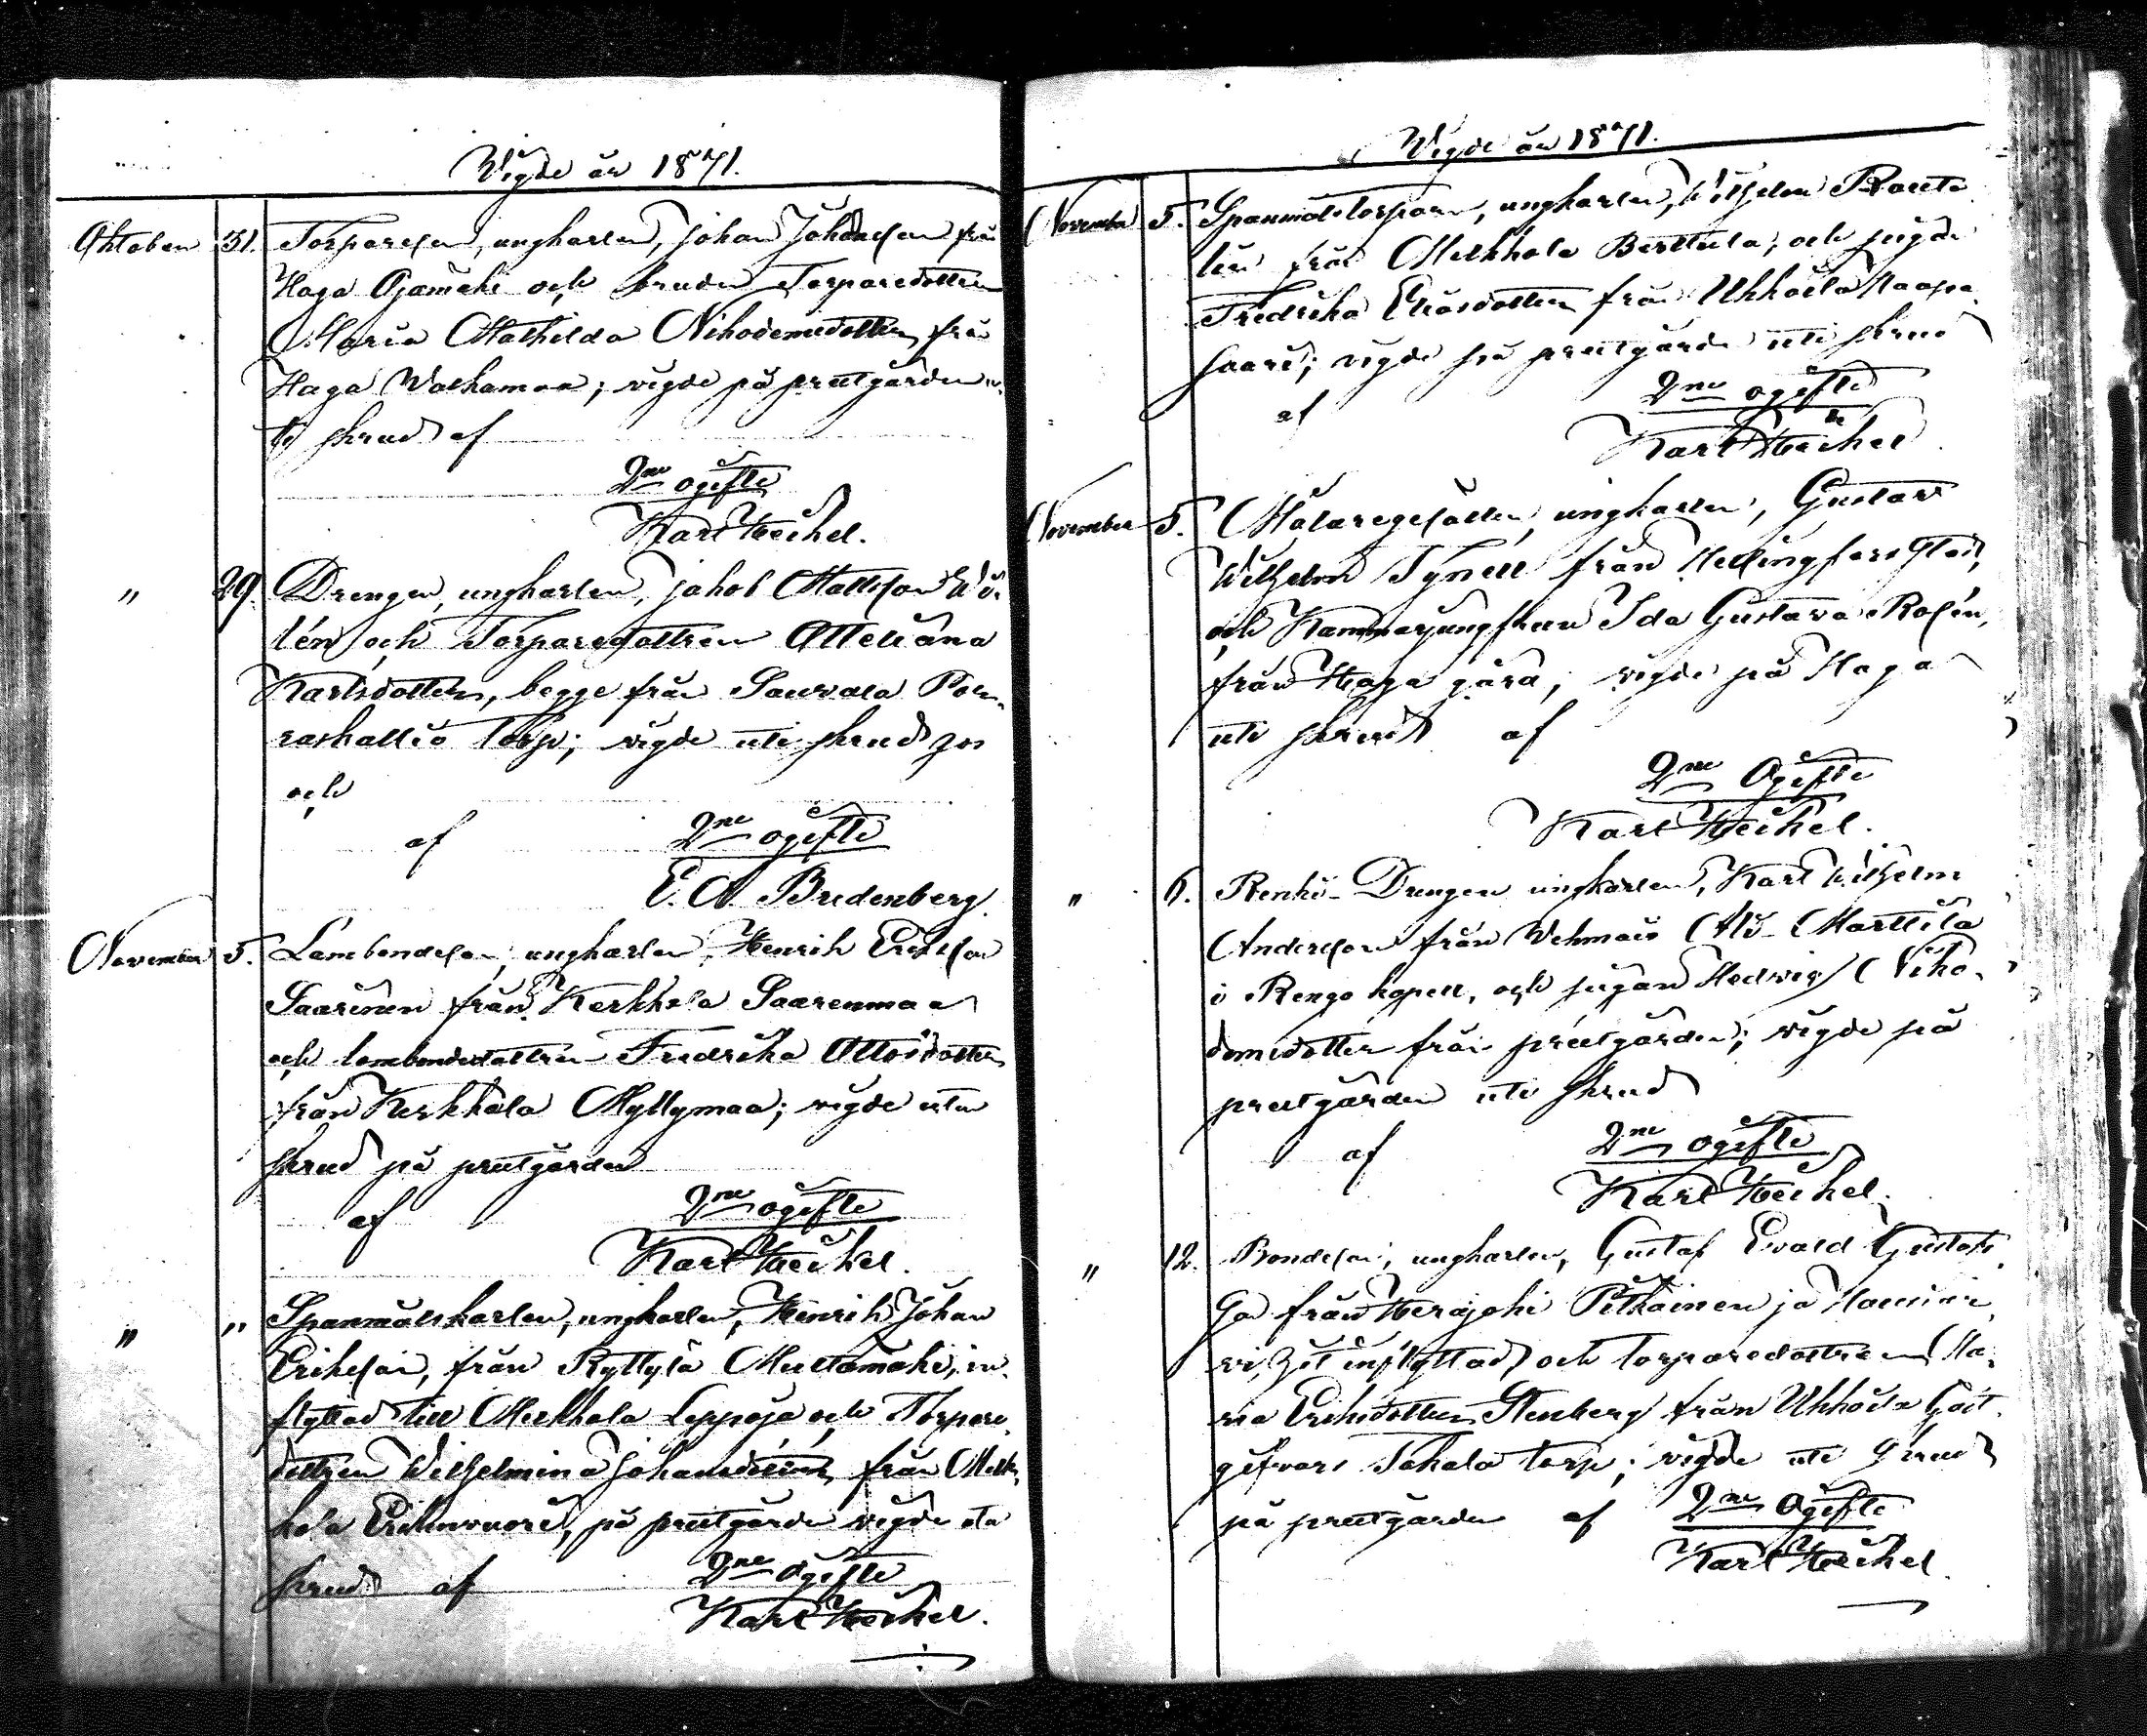 Vigde år 1871.
Oktober 31. Torparesen, ungkarlen, Johan Johansson från
Haga Ojamäki och bruden Torparedottren
Maria Mathilda Nikodemidotter, från
Haga Walkamaa; vigde på prestgården u-
ti skrud af
2ne ogifte
Karl Heikel.
" 29. Drengen, ungkarlen, Jakob Mattsson
lén och Torparedottren
Karlsdotter, begge från Sauvala
raskallio torp; vigde uti skrud
och
af 2ne ogifte
E. A. Bredenberg.
November 5. Lambondesen, ungkarlen, Henrik Eriksson
Saarinen från Kerkkola Saarenmaa
och lambondedottren Fredrika Ottosdotter
från Kerkkola Myllymaa; vigde utan
skrud på prestgården
af 2ne ogifte
Karl Heikel.
" " Spanmålskarlen, ungkarlen, Henrik Johan
Eriksson, från Ryttylä Mustamäki, in-
flyttad till Merkkola Leppoja och Torpare-
dottren Wilhelmina från Merk-
kola Erikinvuori, på prestgården vigde utan
skrud af 2ne ogifte
Karl Heikel.
Vigde år 1871.
November 5. Spanmålstorparen, ungkarlen, Wilhelm Rante-
lin från Merkkola Berttula, och pigan
Fredrika Eliasdotter från Uhkoila Haapa-
saari; vigde på prestgården uti skrud
af 2ne ogifte
Karl Heikel
November 5. Målaregesällen, ungkarlen, Gustav
Wilhelm Tynell från Helsingfors stad,
och Kammarjungfrun Ida Gustava Rosén,
från Haga gård; vigde på Haga
uti skrud af
2ne Ogifte
Karl Heikel.
" 6. Renko-Drengen ungkarlen, Karl Wilhelm
Andersson från Wehmais Ali-Marttila
i Rengo kapell, och pigan Hedvig Niko-
demidotter från prestgården; vigde på
prestgården uti skrud
af 2ne ogifte
Karl Heikel.
" 12. Bondeson, ungkarlen, Gustaf Evald Gustafs-
son från Herajoki Pitkäinen ja
inflyttad, och torparedottren Ma-
ria Eriksdotter Stenberg från Uhkoila Gäst-
gifvars Tokala torp; vigde uti skrud
på prestgården af 2ne Ogifte
Karl Heikel